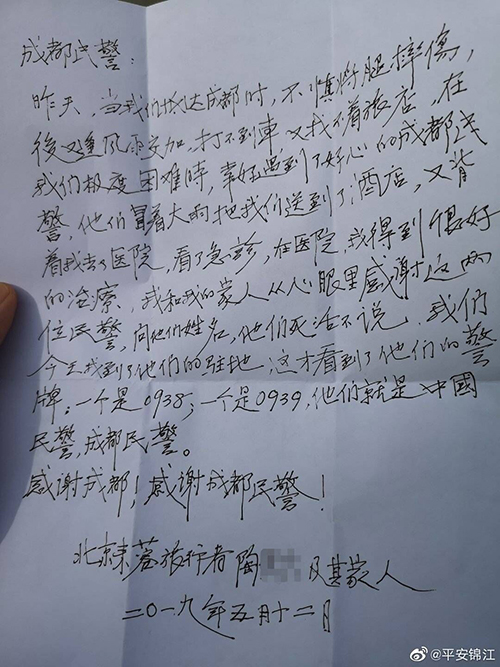 成都民警：
昨天，当我们抵达成都时，不慎将腿摔傷，
後又逢风雨交加，打不到車又找不着旅店，在
我们极度困难時，幸好遇到了好心的成都民
警，他们冒着大雨把我们送到了酒店，又背
着我去了医院，看了急診，在医院，我得到很好
的治療，我和我的家人从心眼里感谢这两
位民警，问他们姓名，他们死活不说，我们
今天找到了他们的驻地，这才看到了他们的警
牌：一个是0938；一个是0939，他们就是中國
民警，成都民警。
感谢成都！感谢成都民警！
北京来蓉旅行者陶 及其家人
二〇一九年五月十二日
@平安锦江